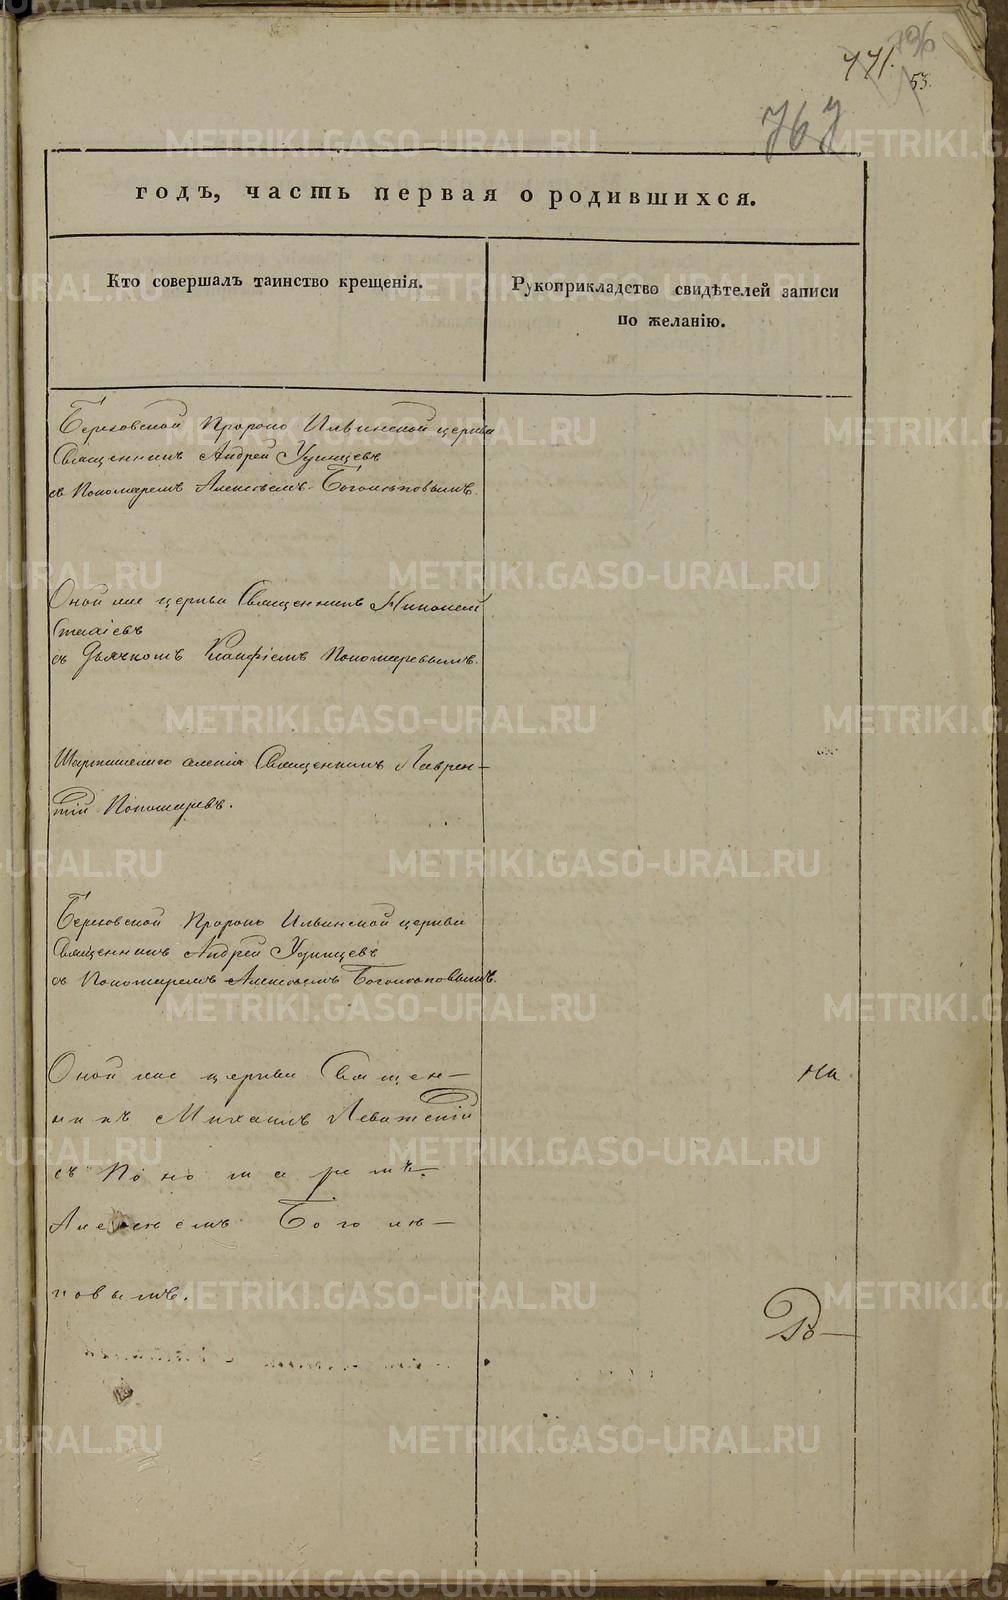 796
771.
53.
767
годъ, часть первая о родившихся.
Кто совершалъ таинство крещенія.
Рукоприкладство свидѣтелей записи
по желанію.
Березовской Пророко Ильинской церкви
Священникъ Андрей Удинцевъ
съ Пономаремъ Алексѣемъ Боголюповымъ.
Оной же церкви Священникъ Николай
Стахіевъ
съ Дьячкомъ Пономаревымъ.
Священникъ Лаврен-
тій Пономаревъ.
Березовской Пророко Ильинской церкви
Священникъ Андрей Удинцевъ
съ Пономаремъ Алексѣемъ Боголюповымъ.
Оной же церкви Священ-
никъ Михаилъ
съ Пономаремъ
Алексѣемъ Боголю-
повымъ.
На
Ро-
METRIKI.GASO-URAL.RU